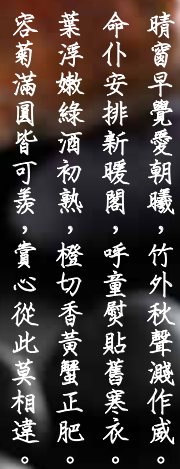 晴窗早覺愛朝曦,竹外秋聲濺作威。
命仆安排新暖閣,呼童熨貼舊寒衣。
葉浮嫩綠酒初熟,橙切香黃蟹正肥。
容菊滿圓皆可羨,賞心從此莫相違。